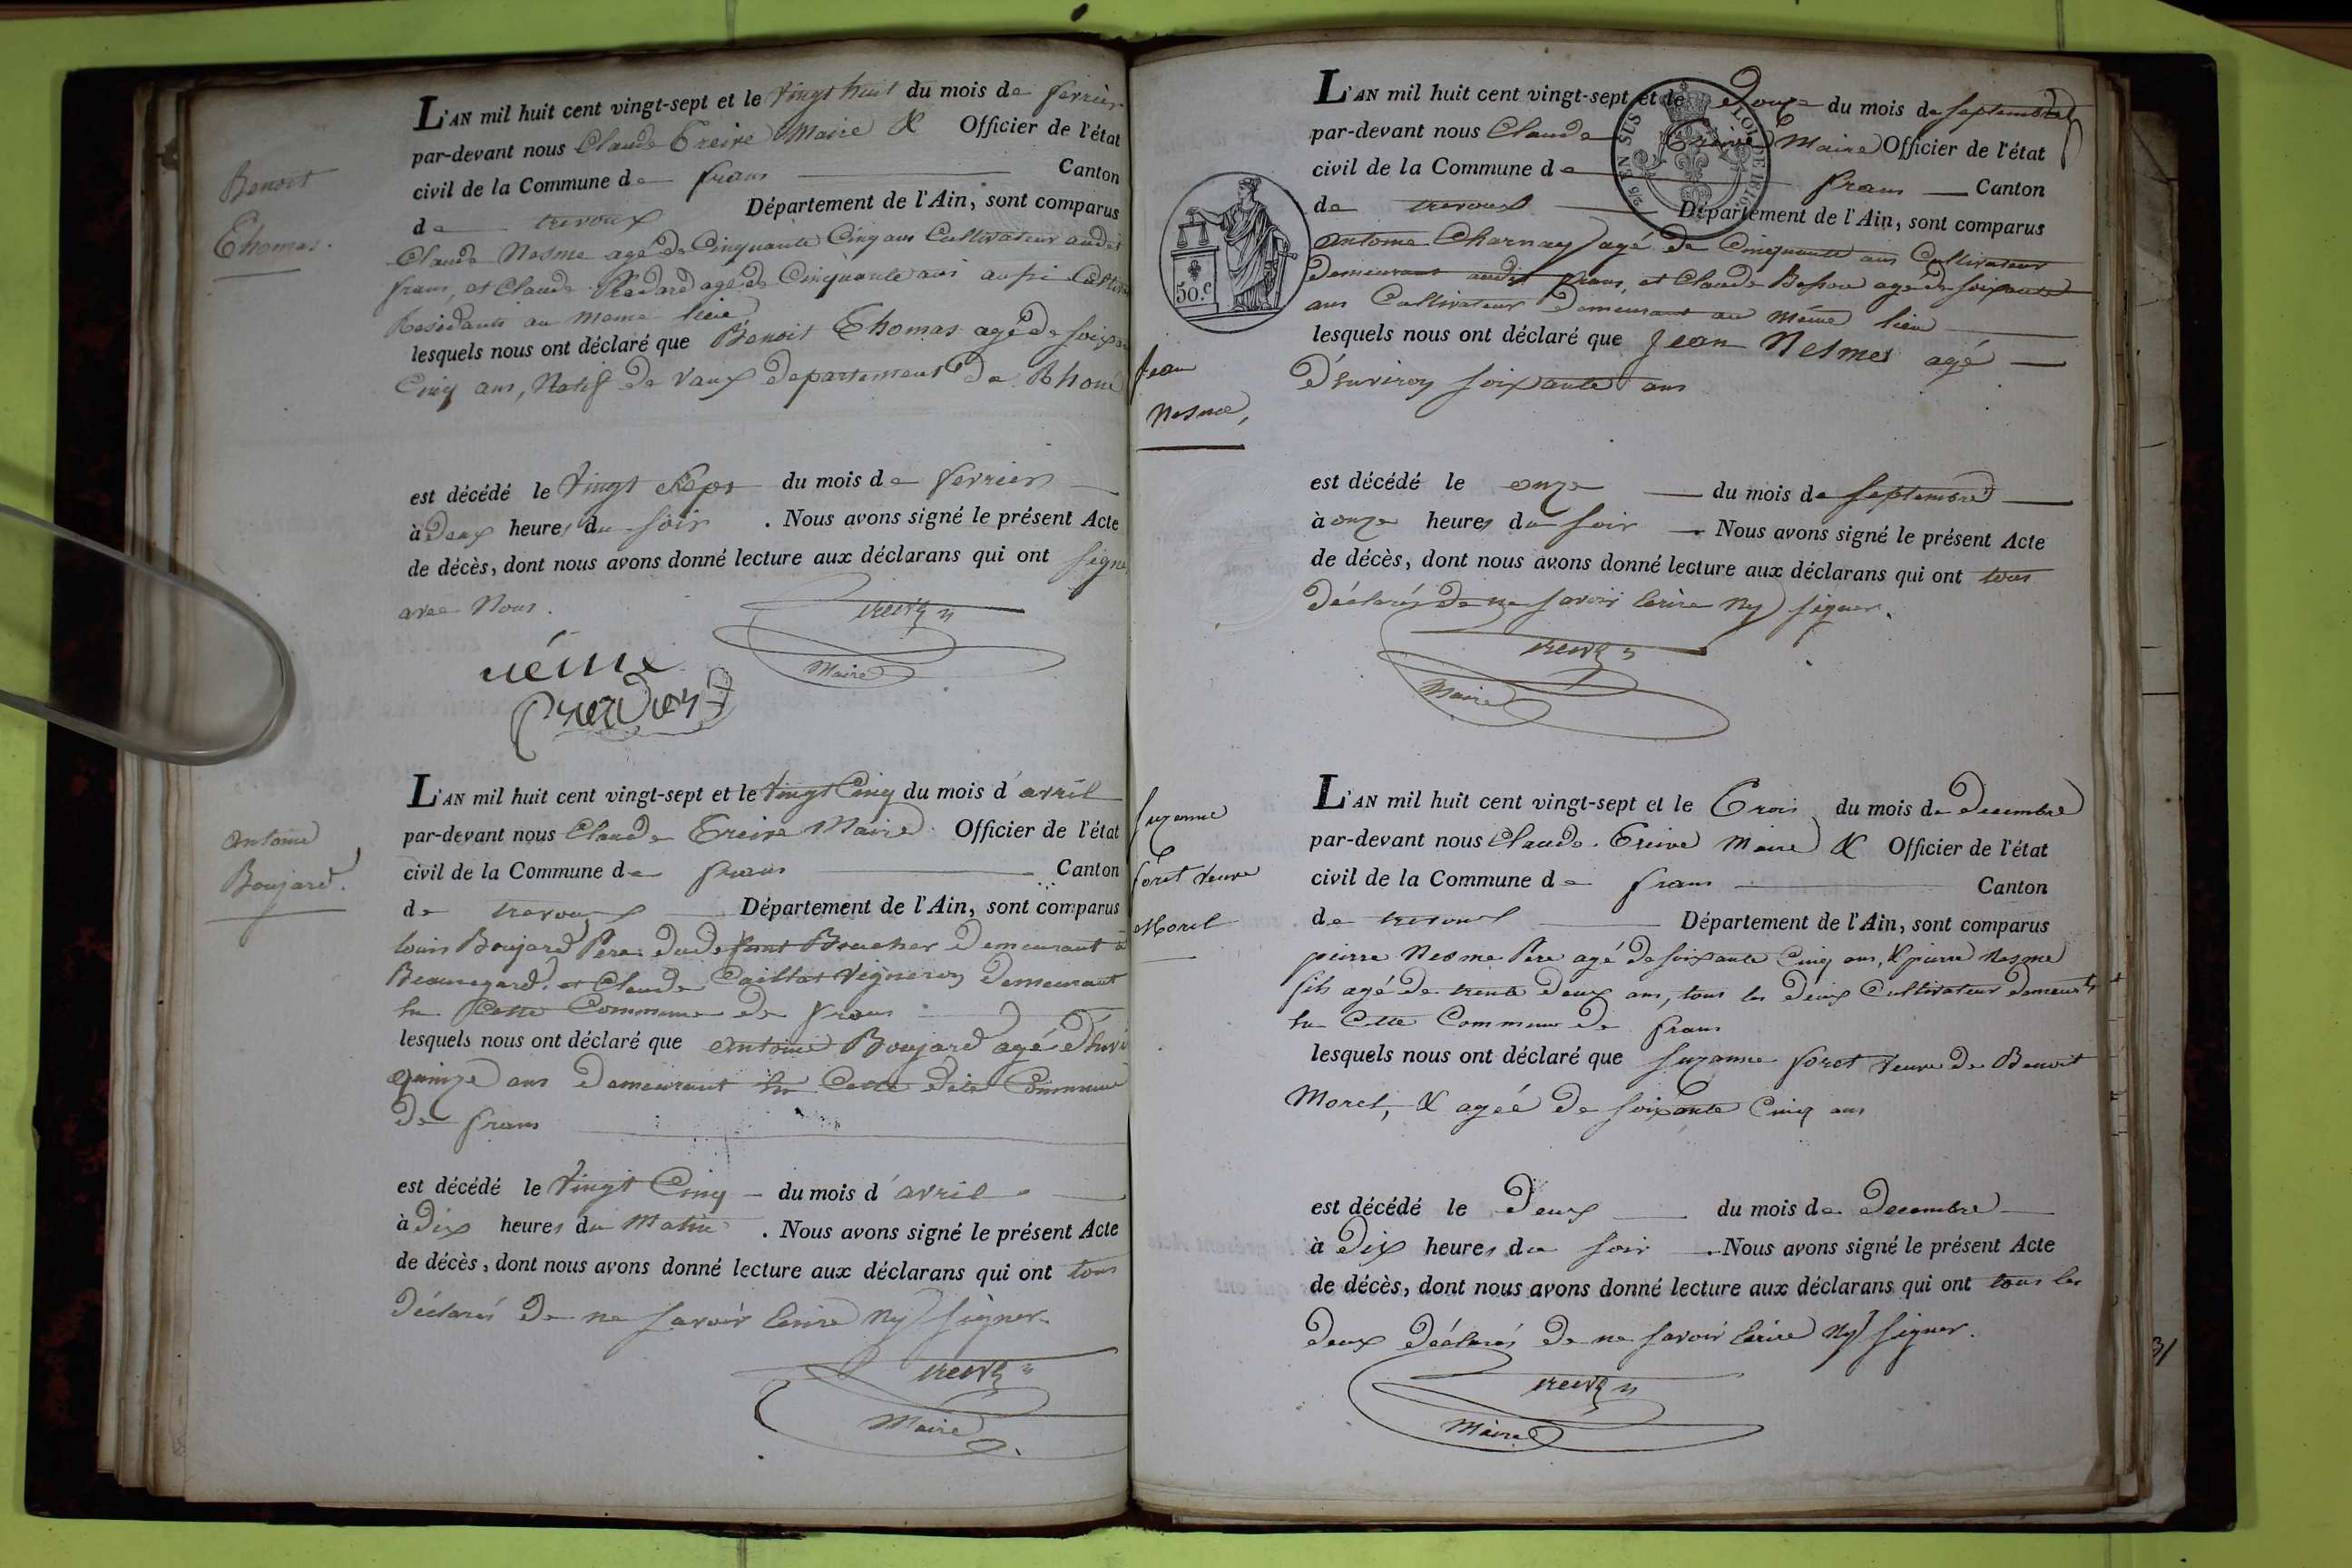 Benoit
Thomas.
L'AN mil huit cent vingt-sept et le vingt huit du mois de fevrier
par-devant nous Claude Treive Maire & Officier de l'état
civil de la Commune de frans Canton
de trevoux Département de l'Ain, sont comparus
Claude Nesme agé de Cinquante Cinq ans Cultivateur audit
frans, et Claude agé de Cinquante ans aussi
Residants au meme lieu
lesquels nous ont déclaré que Benoit Thomas agé de
Cinq ans, Natif de Vaux departement de Rhone
est décédé le vingt Sept du mois de fevrier
à Deux heures du soir . Nous avons signé le présent Acte
de décès, dont nous avons donné lecture aux déclarans qui ont signé
avec Nous.
treive
néme Maire
antoine
Boujard.
L'AN mil huit cent vingt-sept et le vingt Cinq du mois d'avril
par-devant nous Claude Treive Maire Officier de l'état
civil de la Commune de frans Canton
de trevoux Département de l'Ain, sont comparus
louis Boujard Pere dudefunt Demeurant à
Beauregard, et Claude Caillat Vigneron Demeurant
en Cette Commune De frans
lesquels nous ont déclaré que antoine Boujard agé
quinze ans Demeurant en Cette dite Commune
De frans
est décédé le Vingt Cinq du mois d'avril
à Dix heures du Matin . Nous avons signé le présent Acte
de décès, dont nous avons donné lecture aux déclarans qui ont tous
Déclarés De ne savoir Ecrire Ny signer.
treive
Maire
5
L'AN mil huit cent vingt-sept et le Douze du mois de septembre
par-devant nous Claude Treive Maire Officier de l'état
civil de la Commune de frans Canton
de trevoux Département de l'Ain, sont comparus
EN SUS LOI DE 1816.
50.c
antoine Charnay agé de Cinquante ans Cultivateur
Demeurant audit frans, et Claude Besson agé de soixante
ans Cultivateur Demeurant au même lieu
lesquels nous ont déclaré que Jean Nesmes agé
D'environ soixante ans
Jean
Nesme,
est décédé le onze du mois de septembre
à onze heures du soir . Nous avons signé le présent Acte
de décès, dont nous avons donné lecture aux déclarans qui ont tous
Déclarés De ne savoir Ecrire Ny signer.
treive
Maire
Suzanne
foret veuve
Morel
L'AN mil huit cent vingt-sept et le Trois du mois de Decembre
par-devant nous Claude Treive Maire & Officier de l'état
civil de la Commune de frans Canton
de trevoux Département de l'Ain, sont comparus
pierre Nesme Pere agé de soixante Cinq ans, & pierre Nesme
fils agé de trente deux ans, tous les deux Cultivateur
en Cette Commune De frans
lesquels nous ont déclaré que Suzanne foret veuve De Benoit
Morel, & agée De soixante Cinq ans
est décédé le Deux du mois de Decembre
à Dix heures du soir . Nous avons signé le présent Acte
de décès, dont nous avons donné lecture aux déclarans qui ont tous les
Deux Déclarés De ne savoir Ecrire Ny signer.
treive
Maire
31